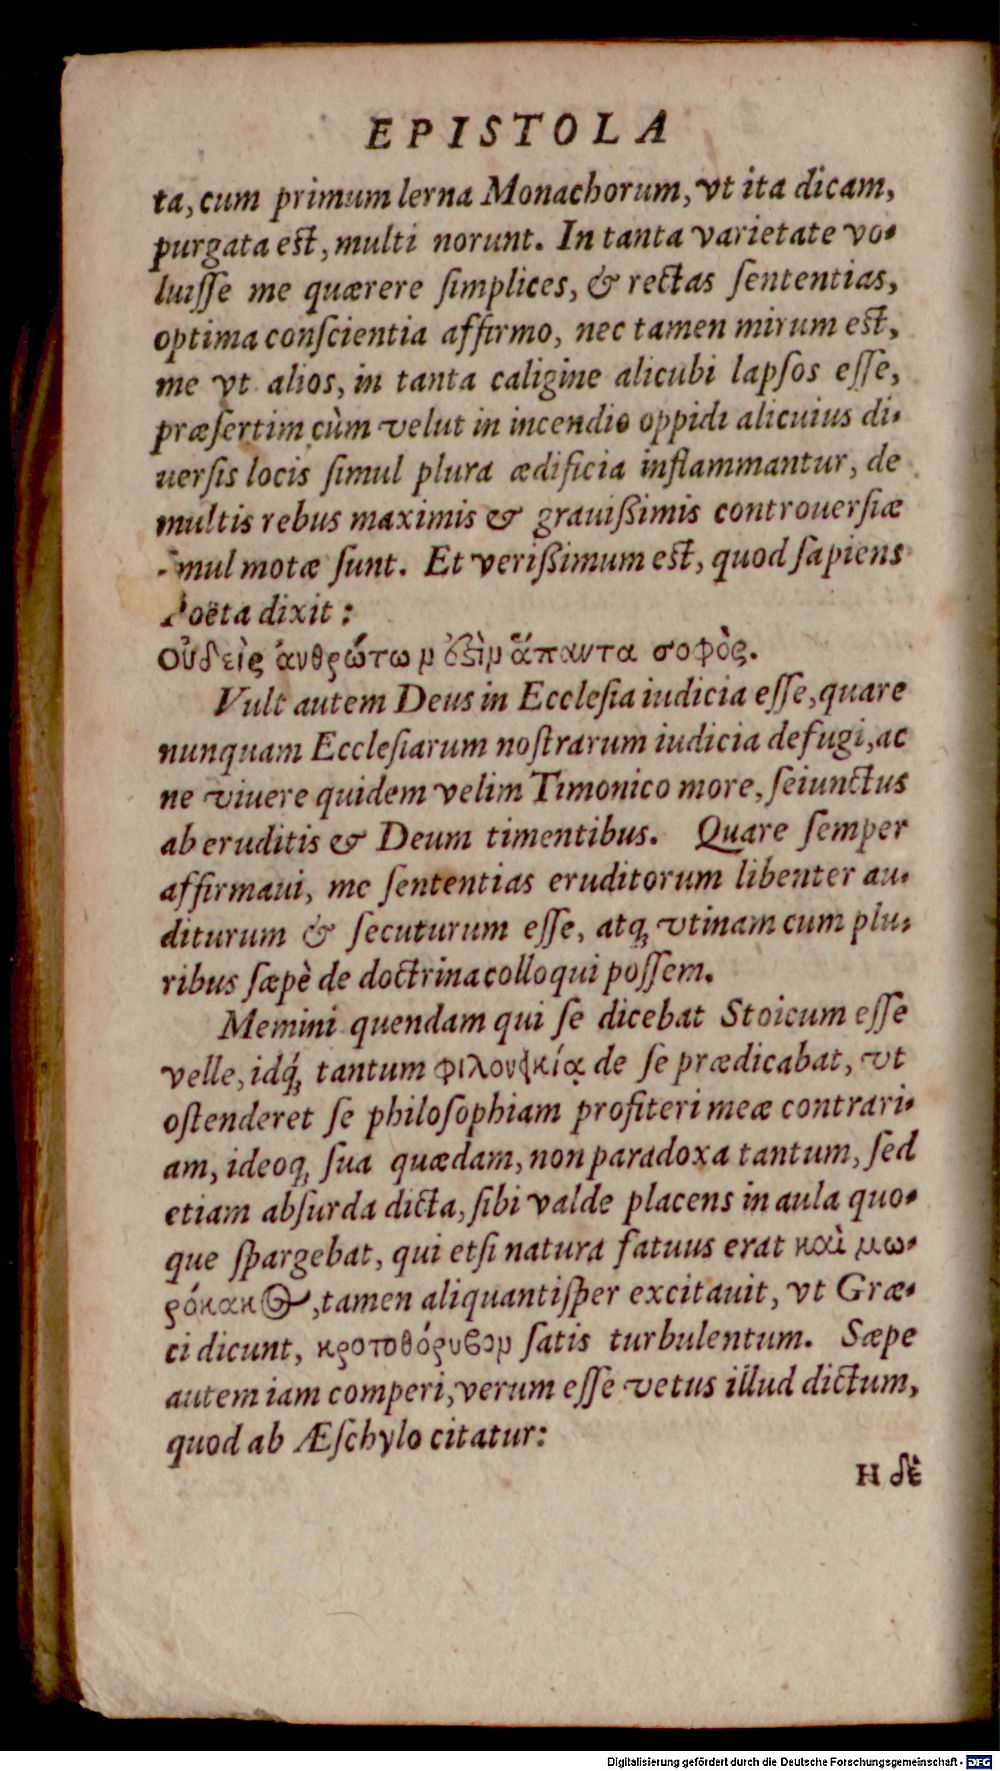 EPISTOLA
ta, cum primum lerna Monachorum, vt ita dicam,
purgata est, multi norunt. In tanta varietate vo-
luiſſe me quærere ſimplices, & rectas ſententias,
optima conſcientia affirmo, nec tamen mirum est,
me vt alios, in tanta caligine alicubi lapſos eſſe,
præſertim cùm velut in incendio oppidi alicuius di-
uerſis locis ſimul plura ædificia inflammantur, de
multis rebus maximis & grauiſsimis controuerſiæ
ſimul motæ ſunt. Et veriſsimum est, quod ſapiens
Poëta dixit:
Οὐδεὶς ἀνθρώπων ἐςὶν ἅπαντα σοφὸς.
Vult autem Deus in Eccleſia iudicia eſſe, quare
nunquam Eccleſiarum noſtrarum iudicia defugi, ac
ne viuere quidem velim Timonico more, ſeiunctus
ab eruditis & Deum timentibus. Quare ſemper
affirmaui, me ſententias eruditorum libenter au-
diturum & ſecuturum eſſe, atq; vtinam cum plu-
ribus ſæpè de doctrina colloqui poſſem.
Memini quendam qui ſe dicebat Stoicum eſſe
velle, idq́; tantum φιλονεικίᾳ de ſe prædicabat, vt
oſtenderet ſe philoſophiam profiteri meæ contrari-
am, ideoq; ſua quædam, non paradoxa tantum, ſed
etiam abſurda dicta, ſibi valde placens in aula quo-
que ſpargebat, qui etſi natura fatuus erat καὶ μω-
ρόκακος, tamen aliquantiſper excitauit, vt Græ-
ci dicunt, κροτοθόρυβον ſatis turbulentum. Sæpe
autem iam comperi, verum eſſe vetus illud dictum,
quod ab Æſchylo citatur:
Η δὲ
Digitalisierung gefördert durch die Deutsche Forschungsgemeinschaft - DFG